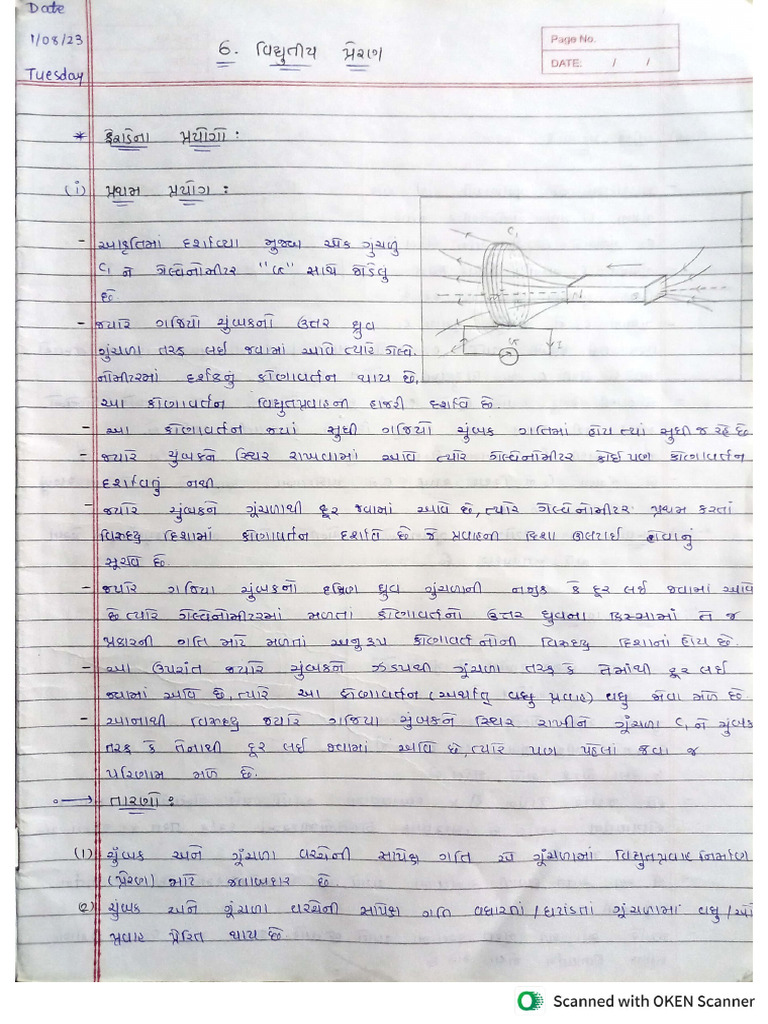 Date
1/08/23
Tuesday
6. વિદ્યુતીય પ્રેરણ
Page No.
DATE: / /
* ફેરાડેના પ્રયોગો :
(i) પ્રથમ પ્રયોગ :
- આકૃતિમાં દર્શાવ્યા મુજબ એક ગુચળુ
C₁ ને ગેલ્વેનોમીટર "G" સાથે જોડેલુ
છે.
- જ્યારે ગજિયા ચુંબકનો ઉત્તર ધ્રુવ
ગુંચળા તરફ લઈ જવામાં આવે ત્યારે ગેલ્વે.
નોમીટરમાં દર્શકનું કોણાવર્તન થાય છે,
આ કોણાવર્તન વિદ્યુતપ્રવાહની હાજરી દર્શાવે છે.
- આ કોણાવર્તન જ્યાં સુધી ગજિયો ચુંબક ગતિમાં હોય ત્યાં સુધી જ રહે છે
- જ્યારે ચુંબકને સ્થિર રાખવામાં આવે ત્યારે ગેલ્વેનોમીટર કોઈ પણ કોણાવર્તન
દર્શાવતું નથી.
- જ્યારે ચુંબકને ગૂંચળાથી દૂર જવામાં આવે છે, ત્યારે ગેલ્વેનોમીટર પ્રથમ કરતાં
વિરુદ્ધ દિશામાં કોણાવર્તન દર્શાવે છે જે પ્રવાહની દિશા ઊલટાઈ હોવાનું
સૂચવે છે.
- જ્યારે ગજિયા ચુંબકનો દક્ષિણ ધ્રુવ ગુંચળાની નજીક કે દૂર લઈ જવામાં આવે
છે ત્યારે ગેલ્વેનોમીટરમાં મળતાં કોણાવર્તનો ઉત્તર ધ્રુવના કિસ્સામાં તે જ
પ્રકારની ગતિ માટે મળતાં અનુરૂપ કોણાવર્તનોની વિરુદ્ધ દિશાનાં હોય છે.
- આ ઉપરાંત જ્યારે ચુંબકને ઝડપથી ગૂંચળા તરફ કે તેમાંથી દૂર લઈ
જવામાં આવે છે, ત્યારે આ કોણાવર્તન (અર્થાત્ વધુ પ્રવાહ) વધુ જોવા મળે છે.
- આનાથી વિરુદ્ધ જ્યારે ગજિયા ચુંબકને સ્થિર રાખીને ગૂંચળા C₁ ને ચુંબક
તરફ કે તેનાથી દૂર લઈ જવામાં આવે છે, ત્યારે પણ પહેલાં જેવા જ
પરિણામ મળે છે.
→ તારણો :
(1) ચુંબક અને ગૂંચળા વચ્ચેની સાપેક્ષ ગતિ એ ગૂંચળામાં વિદ્યુતપ્રવાહ નિર્માણ
(પ્રેરણ) માટે જવાબદાર છે.
(2) ચુંબક અને ગૂંચળા વચ્ચેની સાપેક્ષ ગતિ વધારતાં / ઘટાડતાં ગૂંચળામાં વધુ /
પ્રવાહ પ્રેરિત થાય છે.
C₁
N
S
G
I
Scanned with OKEN Scanner